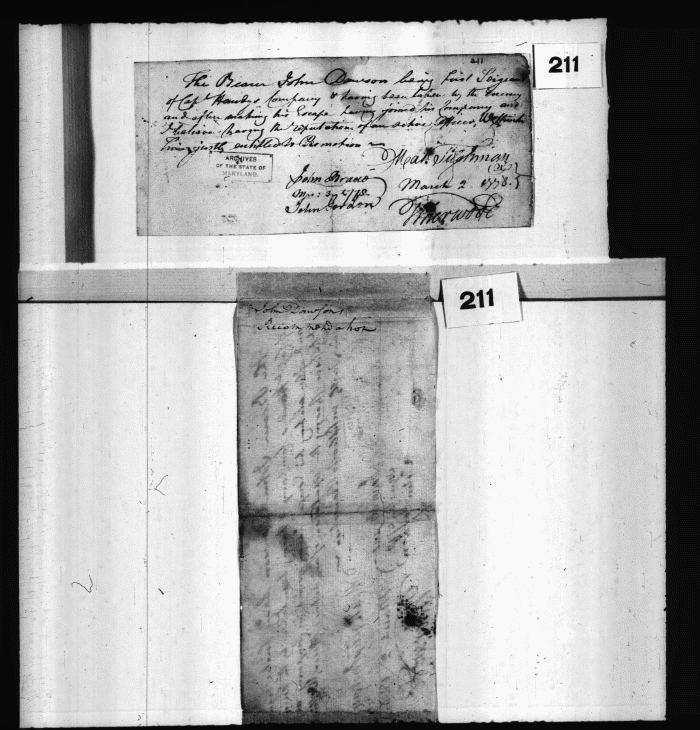 211
211
The Bearer John Dawson being first Sergeant
of Capt Handys Company & having been taken by the Enemy
and after making his Escape having joind his Company and
having the reputation of an active Officer, We
think justly entitled to Promotion
ARCHIVES
OF THE STATE OF
MARYLAND.
March 2 1778.
John
John Gordon
211
John Dawsons
Recommendation